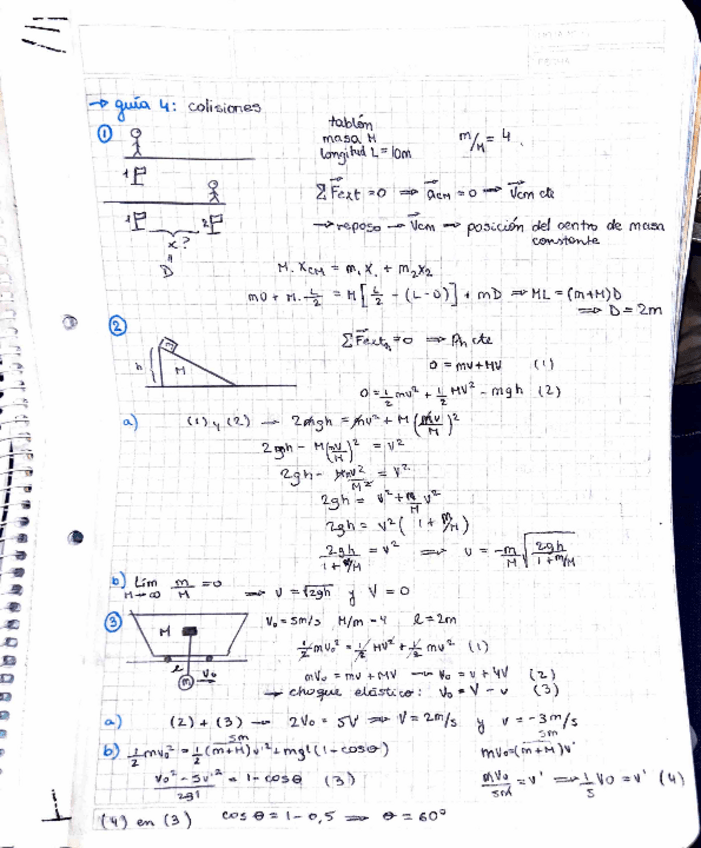 → guía 4: colisiones
①
tablón
masa M
longitud L = 10m
m/M = 4.
1
ΣF⃗ext = 0 ⇒ a⃗CM = 0 → V⃗cm cte
1 2
x?
=
D
→ reposo → V⃗cm → posición del centro de masa
constante
M. XCM = m₁ X₁ + m₂X₂
m0 + M. L/2 = M [L/2 - (L-D)] + mD ⇒ ML = (m+M)D
⇒ D = 2m
②
m
h
M
ΣF⃗extₕ = 0 ⇒ Ph cte
0 = mv + MV (1)
0 = 1/2 mv² + 1/2 MV² - mgh (2)
a) (1) y (2) → 2mgh = mv² + M (mv/M)²
2mgh - M(mv/M)² = v²
2gh - Mmv²/M² = v²
2gh = v² + m/M v²
2gh = v² ( 1 + m/M)
2gh/(1 + m/M) = v² ⇒ v = -m/M √(2gh/(1+m/M))
b) Lím M→∞ m/M = 0 ⇒ v = √2gh y V = 0
③
M
l
m
V₀
V₀ = 5m/s M/m = 4 l = 2m
1/2 mv₀² = 1/2 MV² + 1/2 mv² (1)
mV₀ = mv + MV → V₀ = v + 4V (2)
→ choque elástico: V₀ = V - v (3)
a) (2) + (3) → 2V₀ = 5V ⇒ V = 2m/s y v = -3m/s
b) 1/2 mv₀² = 1/2 (m+M) v'² + mgl (1 - cosθ)
5m
mV₀ = (m+M) v'
5m
(V₀² - 5v'²)/2gl = 1 - cosθ (3)
mV₀/5m = v' ⇒ 1/5 V₀ = v' (4)
(4) en (3) cos θ = 1 - 0,5 ⇒ θ = 60°